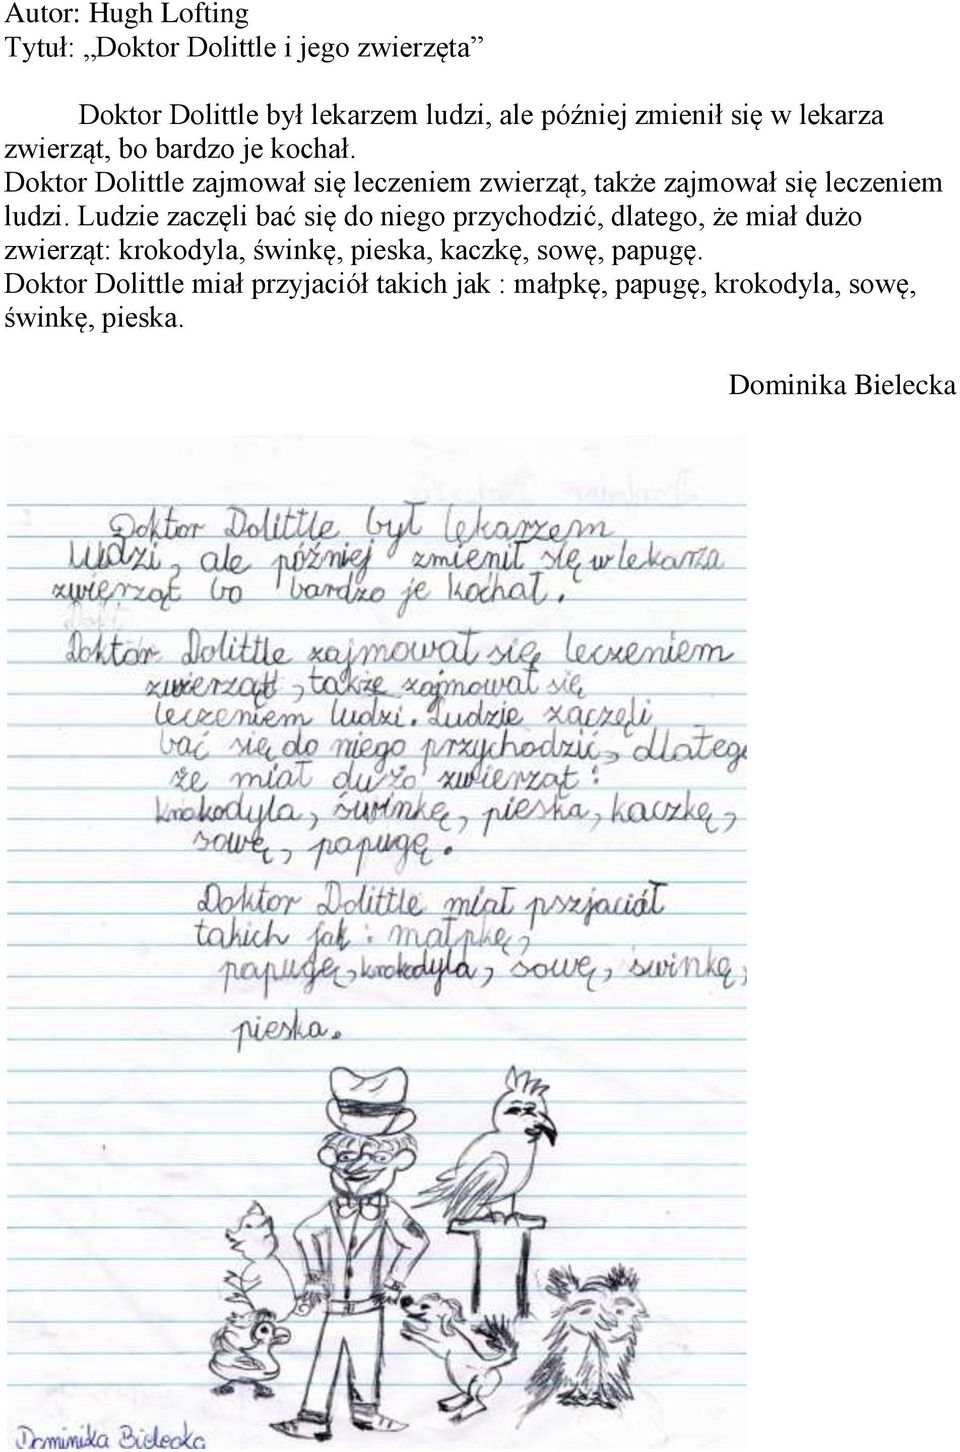 Autor: Hugh Lofting
Tytuł: „Doktor Dolittle i jego zwierzęta”
Doktor Dolittle był lekarzem ludzi, ale później zmienił się w lekarza
zwierząt, bo bardzo je kochał.
Doktor Dolittle zajmował się leczeniem zwierząt, także zajmował się leczeniem
ludzi. Ludzie zaczęli bać się do niego przychodzić, dlatego, że miał dużo
zwierząt: krokodyla, świnkę, pieska, kaczkę, sowę, papugę.
Doktor Dolittle miał przyjaciół takich jak : małpkę, papugę, krokodyla, sowę,
świnkę, pieska.
Dominika Bielecka
Doktor Dolittle był lekarzem
ludzi, ale później zmienił się w lekarza
zwierząt bo bardzo je kochał.
Doktor Dolittle zajmował się leczeniem
zwierząt, także zajmował się
leczeniem ludzi. Ludzie zaczęli
bać się do niego przychodzić, dlatego
że miał dużo zwierząt:
krokodyla, świnkę, pieska, kaczkę,
sowę, papugę.
Doktor Dolittle miał pszjaciół
takich jak : małpkę,
papugę, krokodyla, sowę, świnkę,
pieska.
Dominika Bielecka